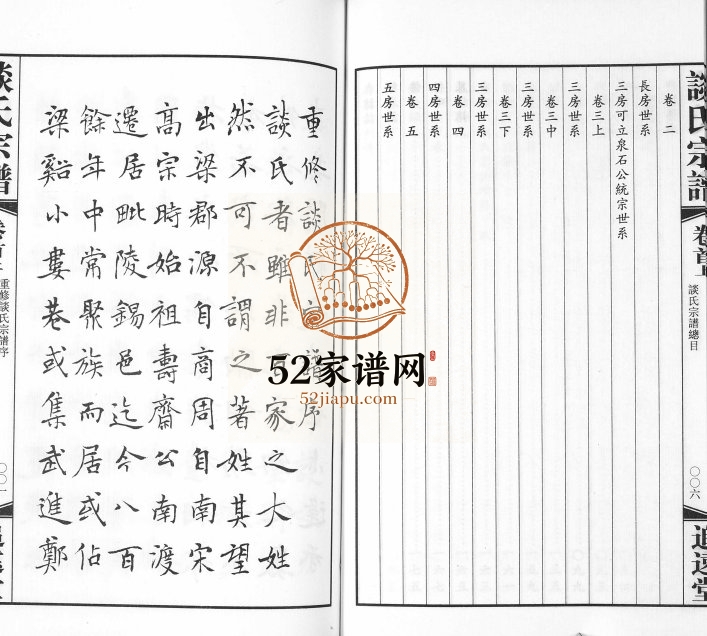 談氏宗譜
卷首上
談氏宗譜總目
〇〇六
追遠堂
卷二
長房世系
三房可立泉石公統宗世系
卷三上
三房世系
卷三中
三房世系
卷三下
三房世系
卷四
四房世系
卷五
五房世系
重修談氏譜序
談氏者雖非家之大姓
然不可不謂之著姓其望
出梁郡源自商周自南宋
高宗時始祖壽齋公南渡
遷居毗陵錫邑迄今八百
餘年中常聚族而居或佔
梁谿小婁巷或集武進鄭
談氏宗譜
重修談氏宗譜序
〇〇一
52家谱网
52jiapu.com